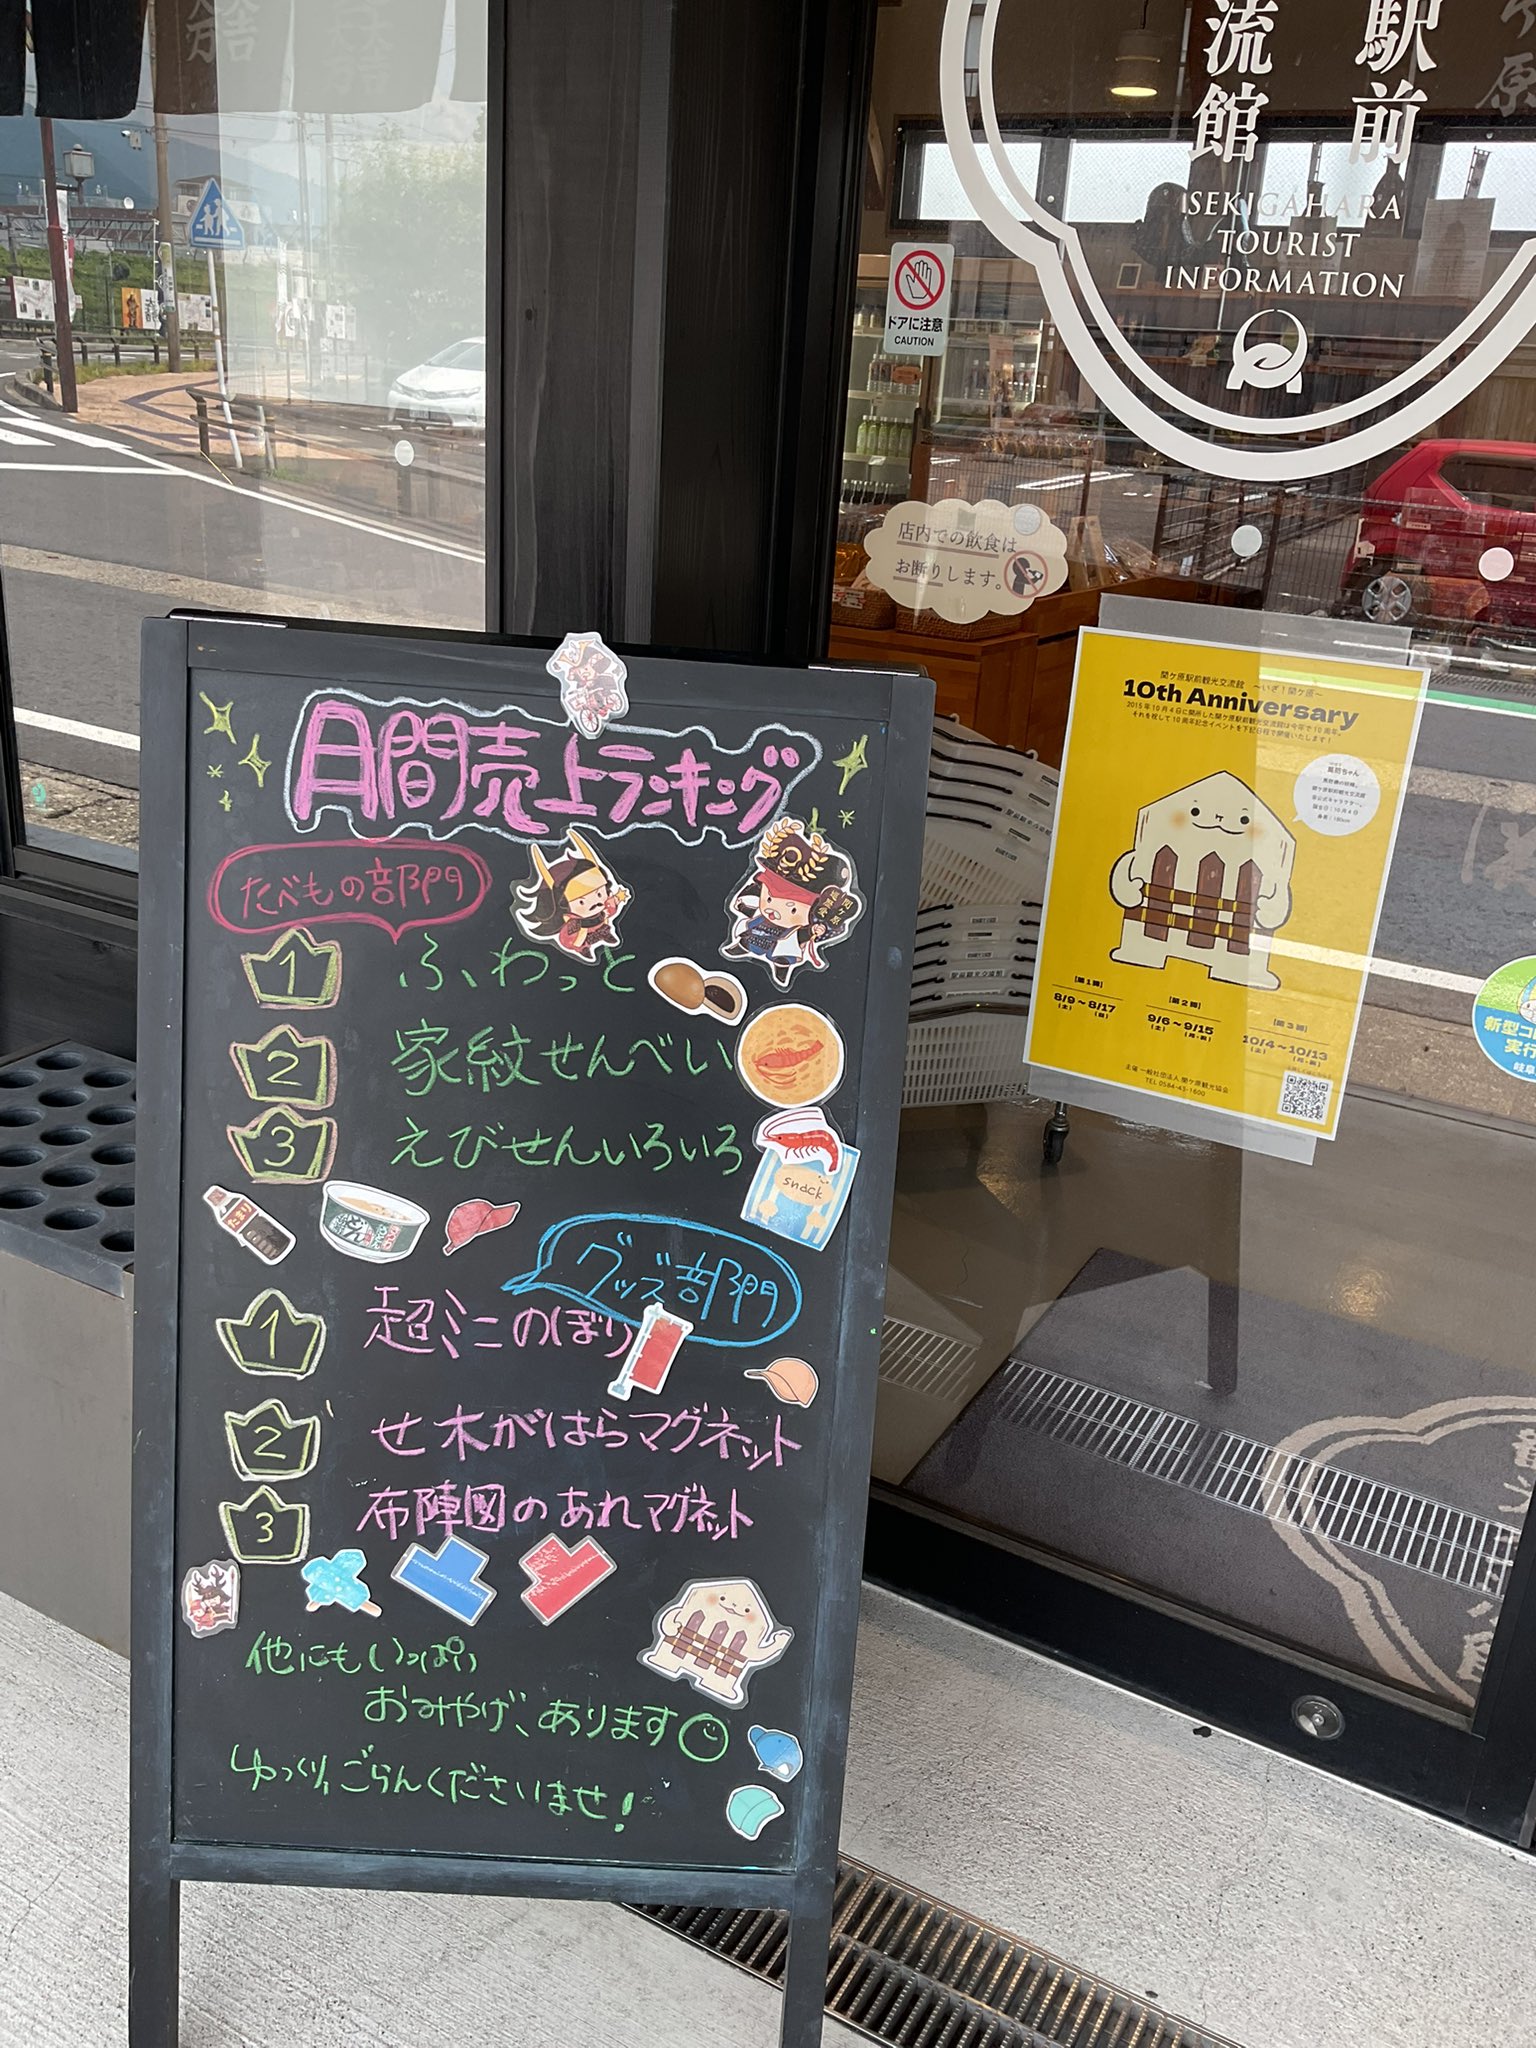 駅前
流館
SEKIGAHARA
TOURIST
INFORMATION
ドアに注意
CAUTION
店内での飲食は
お断りします。
月間売上ランキング
たべもの部門
1 ふ、わっと
2 家紋せんべい
3 えびせんいろいろ
snack
グッズ部門
1 超ミニのぼり
2 せ木がはらマグネット
3 布陣図のあれマグネット
他にもいっぱい
おみやげ、あります
ゆっくり、ごらんくださいませ!
関ケ原駅前観光交流館 〜いざ!関ケ原〜
10th Anniversary
2015年10月4日に開所した関ケ原駅前観光交流館は今年で10周年。
それを祝して10周年記念イベントを下記日程で開催いたします!
[第1弾]
8/9~8/17
(土) (日)
[第2弾]
9/6~9/15
(土) (月・祝)
[第3弾]
10/4~10/13
(土) (月・祝)
主催 一般社団法人 関ケ原観光協会
TEL 0584-43-1600
新型コ
実行
岐阜